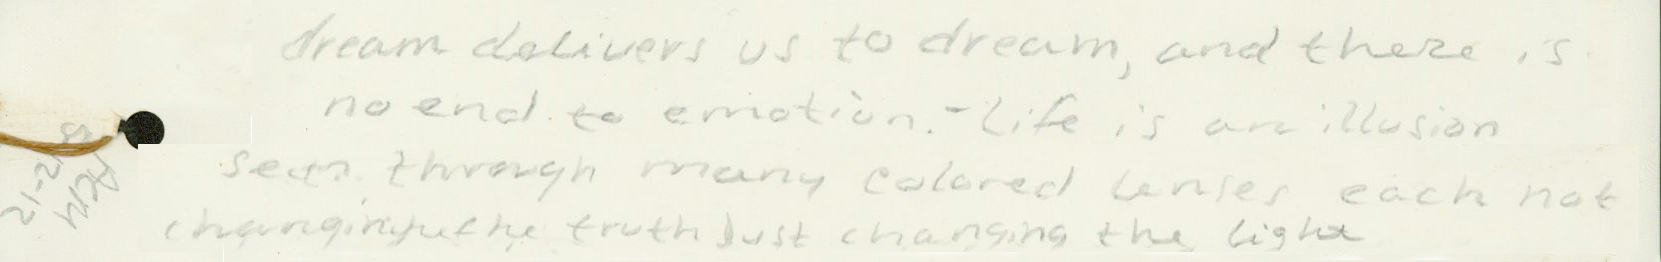 dream delivers us to dream, and there is
no end to emotion. - Life is an illusion
seen through many colored lenses each not
changing the truth just changing the light